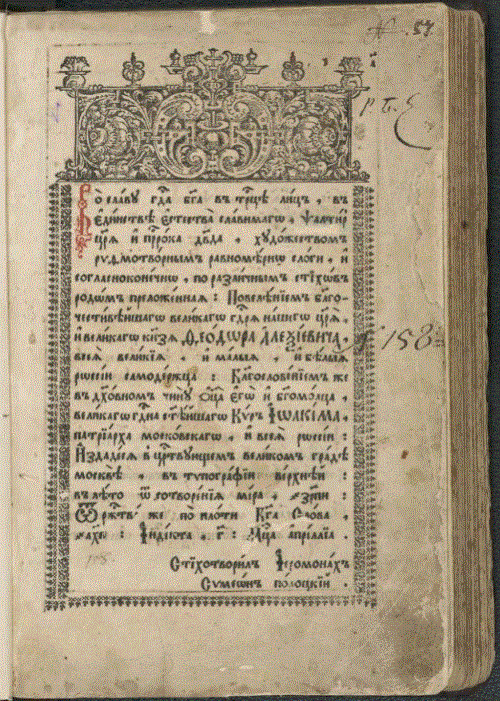 № 57.
Во славу гда бга въ трцѣ лицъ, въ
единствѣ естества славимагѡ, Ѱалти
црѧ и пррока двда, художествомъ
риѳмотворнымъ равномѣрнѡ слоги, и
согласноконечнѡ, по различнымъ стіхѡвъ
родѡмъ преложеннаѧ: Повелѣніемъ благо-
честивѣйшагѡ великагѡ гдрѧ нашегѡ црѧ,
и великагѡ кнзѧ Ѳеодѡра Алеѯіевича,
всеѧ великіѧ, и малыѧ, и бѣлыѧ
рѡссіи самодержца: Благословеніемъ же
въ дховномъ чину оца егѡ и бгомолца,
великагѡ гдна стѣйшагѡ Кѵръ Іѡакіма,
патріарха московскагѡ, и всеѧ рѡссіи:
Издадесѧ в цртвующемъ великомъ градѣ
москвѣ, въ тѵпографіи верхней:
въ лѣто ѿ сотворенїѧ мїра, ҂зрпи:
Ѿ ржтва же по плоти Бга Слова,
҂ахп: Індікта, г: Мца апрілліа.
Стіхотворилъ Іеромонахъ
Сѵмеѡнъ полоцкїй.
158